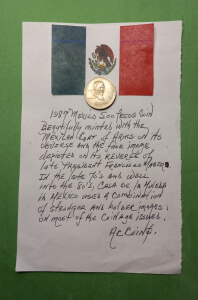 1987 Mexico 500 Peso Coin
Beautifully minted with the
Mexican Coat of Arms on its
obverse and the fine image
depicted on its reverse of
late President Francisco Madero
In the late 70's and well
into the 80's, Casa de la
in Mexico used a combination
of stronger and bolder images
on most of the coinage issued.